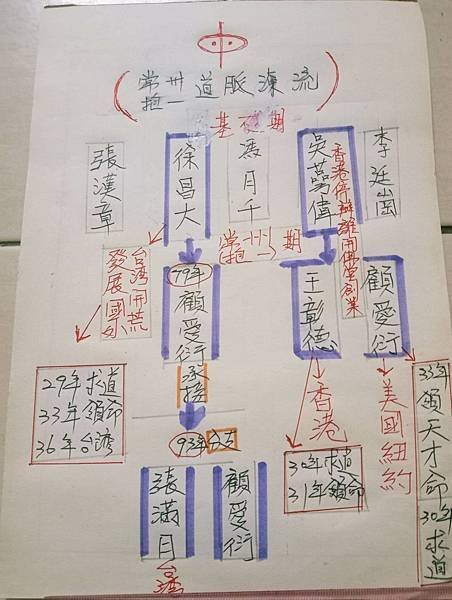 中
(常州道脈源流)
抱一
基礎期
李廷崗
吳蕚偉
馮月千
徐昌大
張漢章
香港停辦離開佛堂創業
(常州)期
抱一
台灣開荒
發展國外
79年
顧愛衍
承接
王彰德
顧愛衍
29年求道
33年領命
36年台湾
93年分支
張滿月
顧愛衍
台灣
香港
30年求道
31年領命
美國紐約
33年領天才命
30年求道